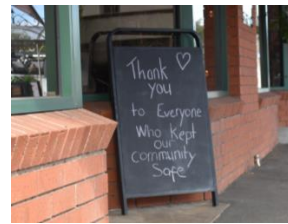 Thank
you
to Everyone
Who Kept
our
community
Safe